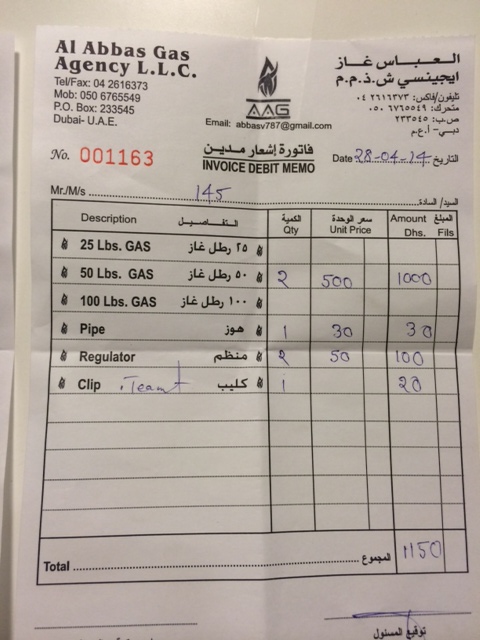 Al Abbas Gas
Agency L.L.C.
Tel/Fax: 04 2616373
Mob: 050 6765549
P.O. Box: 233545
Dubai- U.A.E.
AAG
Email: abbasv787@gmail.com
العباس غاز
ايجينسي ش.ذ.م.م
تليفون/فاكس: ٠٤ ٢٦١٦٣٧٣
متحرك: ٠٥٠ ٦٧٦٥٥٤٩
ص.ب: ٢٣٣٥٤٥
دبي- أ.ع.م
No. 001163
فاتورة إشعار مدين
INVOICE DEBIT MEMO
Date 28-04-14 التاريخ
Mr./M/s 145 السيد/السادة
Description التفاصيل الكمية Qty سعر الوحدة Unit Price Amount المبلغ Dhs. Fils
25 Lbs. GAS ٢٥ رطل غاز
50 Lbs. GAS ٥٠ رطل غاز 2 500 1000
100 Lbs. GAS ١٠٠ رطل غاز
Pipe هوز 1 30 30
Regulator منظم 2 50 100
Clip كليب 1 20
Total المجموع 1150
توقيع المسئول